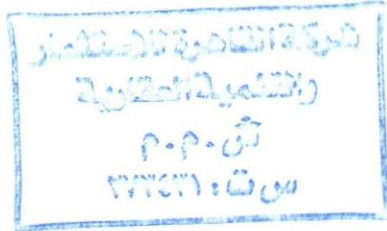 شركة القاهرة للاستثمار
والتنمية العقارية
ش.م.م
س ت: